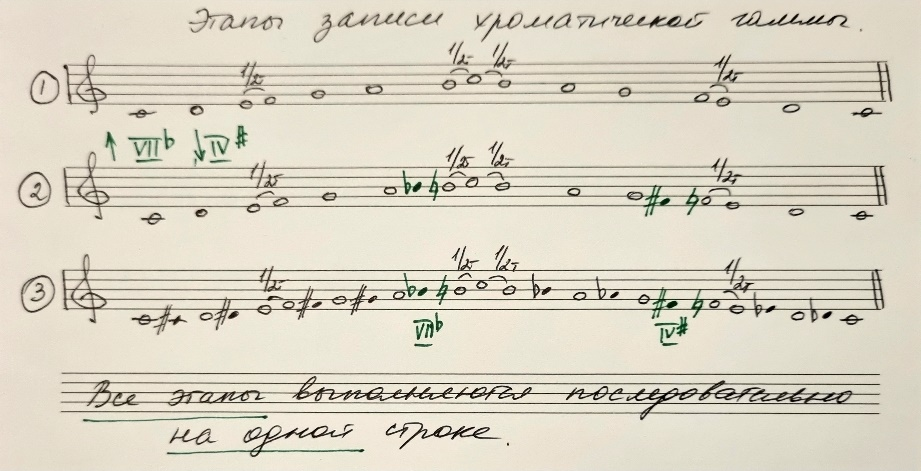 Этапы записи хроматической гаммы.
① 1/2т 1/2т 1/2т 1/2т
↑ VII♭ ↓ IV♯
② 1/2т 1/2т 1/2т 1/2т
③ 1/2т 1/2т 1/2т 1/2т
VII♭ IV♯
Все этапы выполняются последовательно
на одной строке.